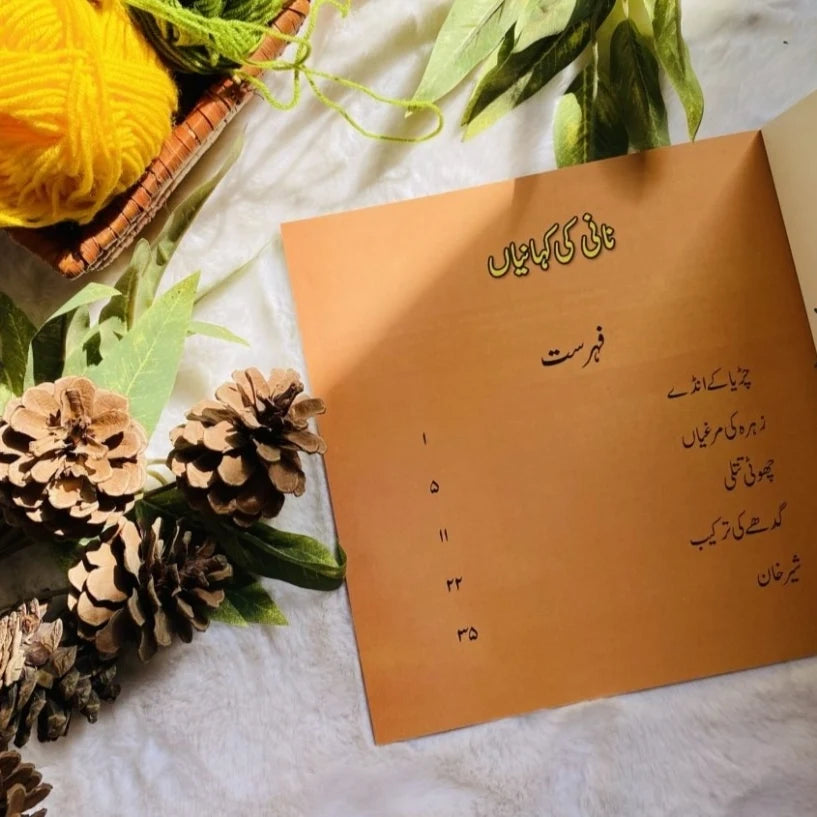 نانی کی کہانیاں
فہرست
چڑیا کے انڈے ۱
زہرہ کی مرغیاں ۵
چھوٹی تتلی ۱۱
گدھے کی ترکیب ۲۲
شیر خان ۳۵